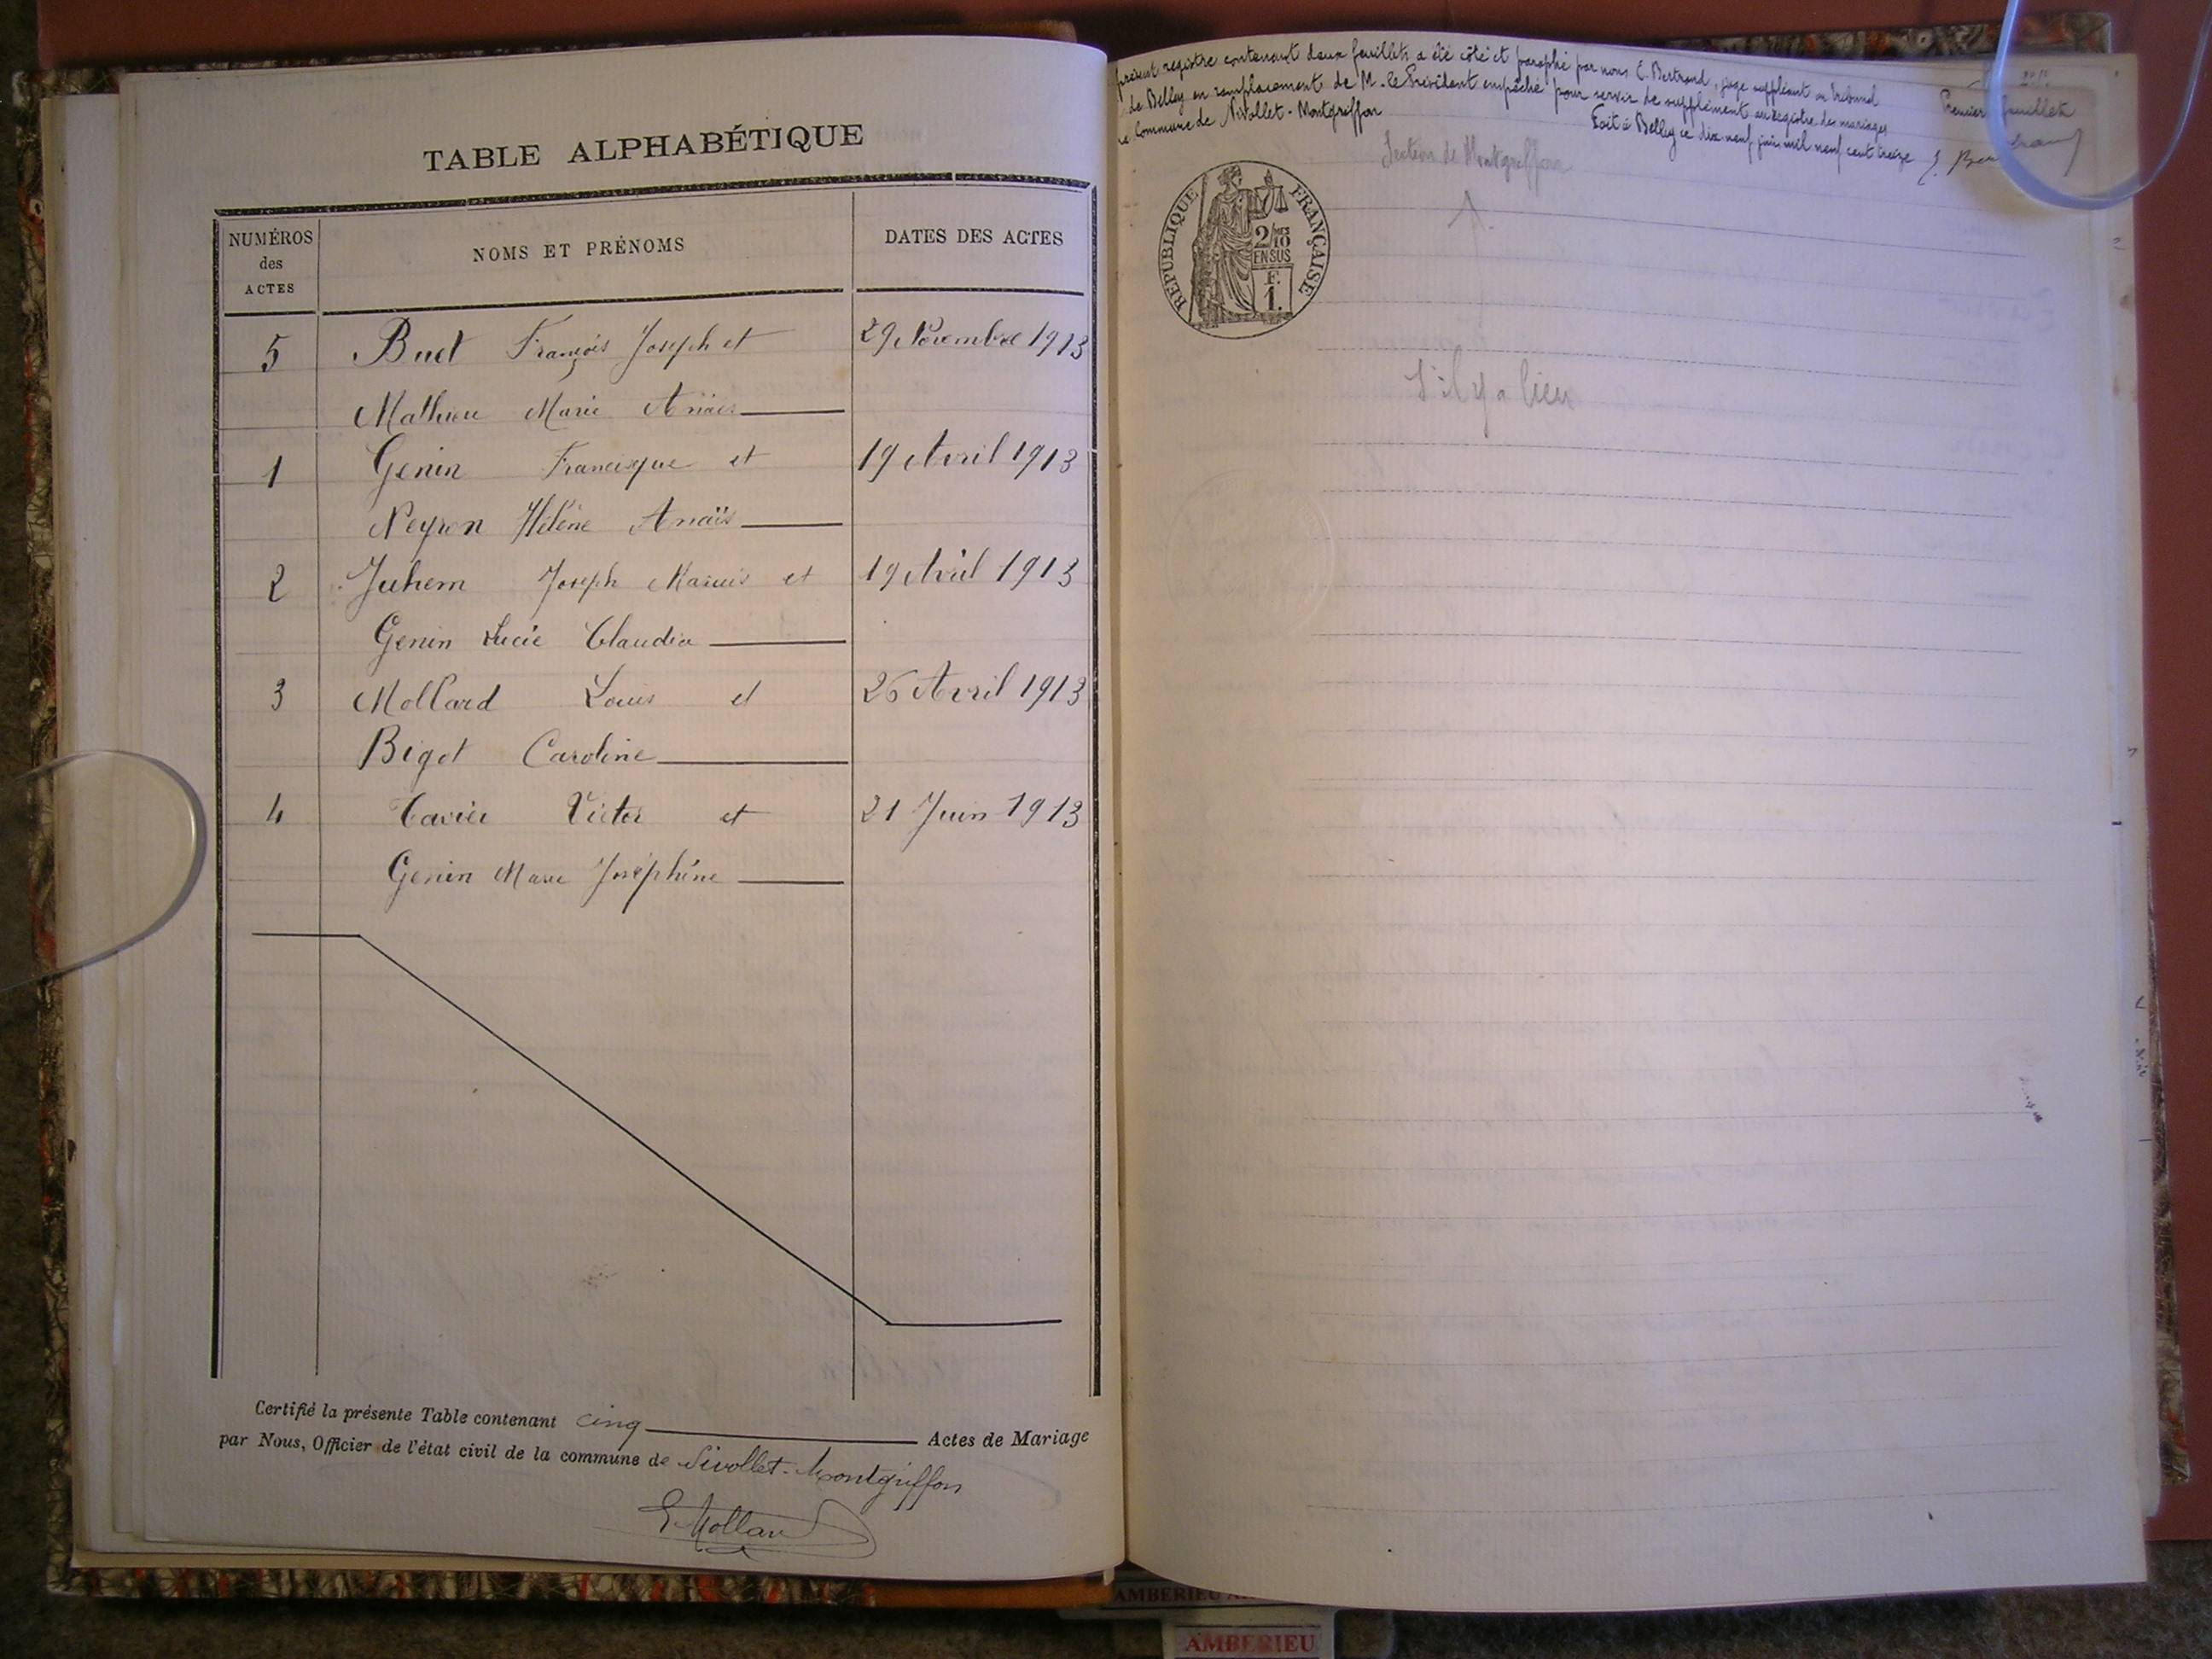 TABLE ALPHABÉTIQUE
NUMÉROS des ACTES
NOMS ET PRÉNOMS
DATES DES ACTES
5 Buet François Joseph et 29 Novembre 1913
Mathieu Marie Anaïs
1 Genin Francisque et 19 Avril 1913
Neyron Hélène Anaïs
2 Juhem Joseph Marius et 19 Avril 1913
Genin Lucie Claudia
3 Mollard Louis et 26 Avril 1913
Bigot Caroline
4 Tavier Victor et 21 Juin 1913
Genin Marie Joséphine
Certifié la présente Table contenant cinq Actes de Mariage
par Nous, Officier de l'état civil de la commune de Nivollet-Montgriffon
E. Mollard
présent registre contenant deux feuillets a été côté et paraphé par nous E. Bertrand, juge suppléant au Tribunal
de Belley en remplacement de M. le Président empêché pour servir de supplément au registre des mariages
Commune de Nivollet-Montgriffon
Fait à Belley ce dix neuf juin mil neuf cent treize
Premier feuillet
E. Bertrand
Section de Montgriffon
RÉPUBLIQUE FRANÇAISE
2/10 MES
EN SUS
F.
1.
S'il y a lieu
AMBERIEU
AMBERIEU